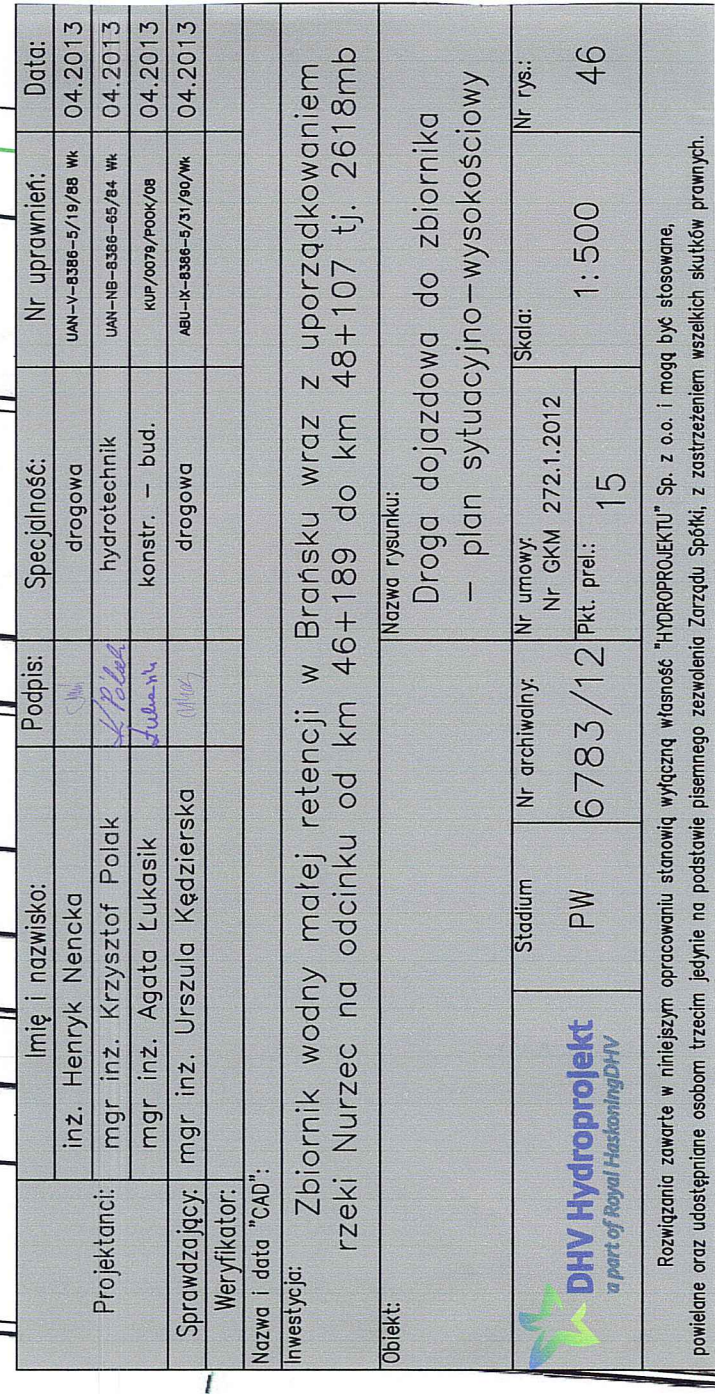 Imię i nazwisko: Podpis: Specjalność: Nr uprawnień: Data:
Projektanci:
inż. Henryk Nencka drogowa UAN-V-8386-5/19/88 Wk 04.2013
mgr inż. Krzysztof Polak K Polak hydrotechnik UAN-NB-8386-65/84 Wk 04.2013
mgr inż. Agata Łukasik Łukasik konstr. - bud. KUP/0079/POOK/08 04.2013
Sprawdzający: mgr inż. Urszula Kędzierska drogowa ABU-IX-8386-5/31/90/Wk 04.2013
Weryfikator:
Nazwa i data "CAD":
Inwestycja:
Zbiornik wodny małej retencji w Brańsku wraz z uporządkowaniem
rzeki Nurzec na odcinku od km 46+189 do km 48+107 tj. 2618mb
Obiekt:
Nazwa rysunku:
Droga dojazdowa do zbiornika
- plan sytuacyjno-wysokościowy
DHV Hydroprojekt
a part of Royal HaskoningDHV
Stadium
PW
Nr archiwalny:
6783/12
Nr umowy:
Nr GKM 272.1.2012
Pkt. prel.: 15
Skala:
1:500
Nr rys.:
46
Rozwiązania zawarte w niniejszym opracowaniu stanowią wyłączną własność "HYDROPROJEKTU" Sp. z o.o. i mogą być stosowane,
powielane oraz udostępniane osobom trzecim jedynie na podstawie pisemnego zezwolenia Zarządu Spółki, z zastrzeżeniem wszelkich skutków prawnych.